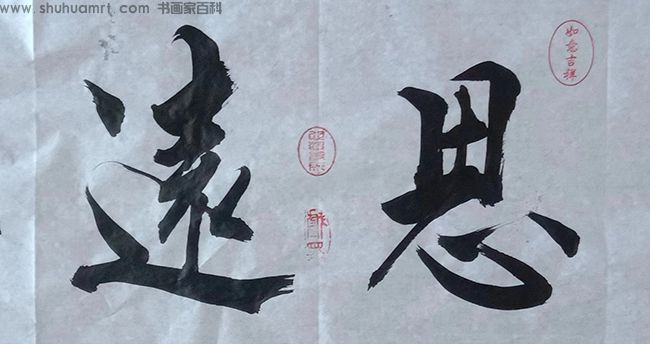 www.shuhuamrt.com 书画家百科
如意吉祥
思遠